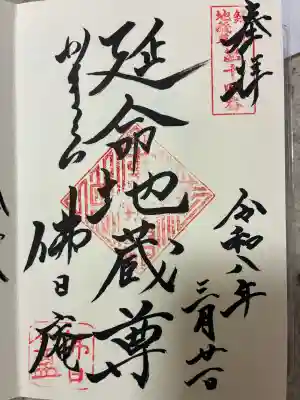 奉拝
令和八年
三月廿一日
延命地蔵尊
かまくら
佛日庵